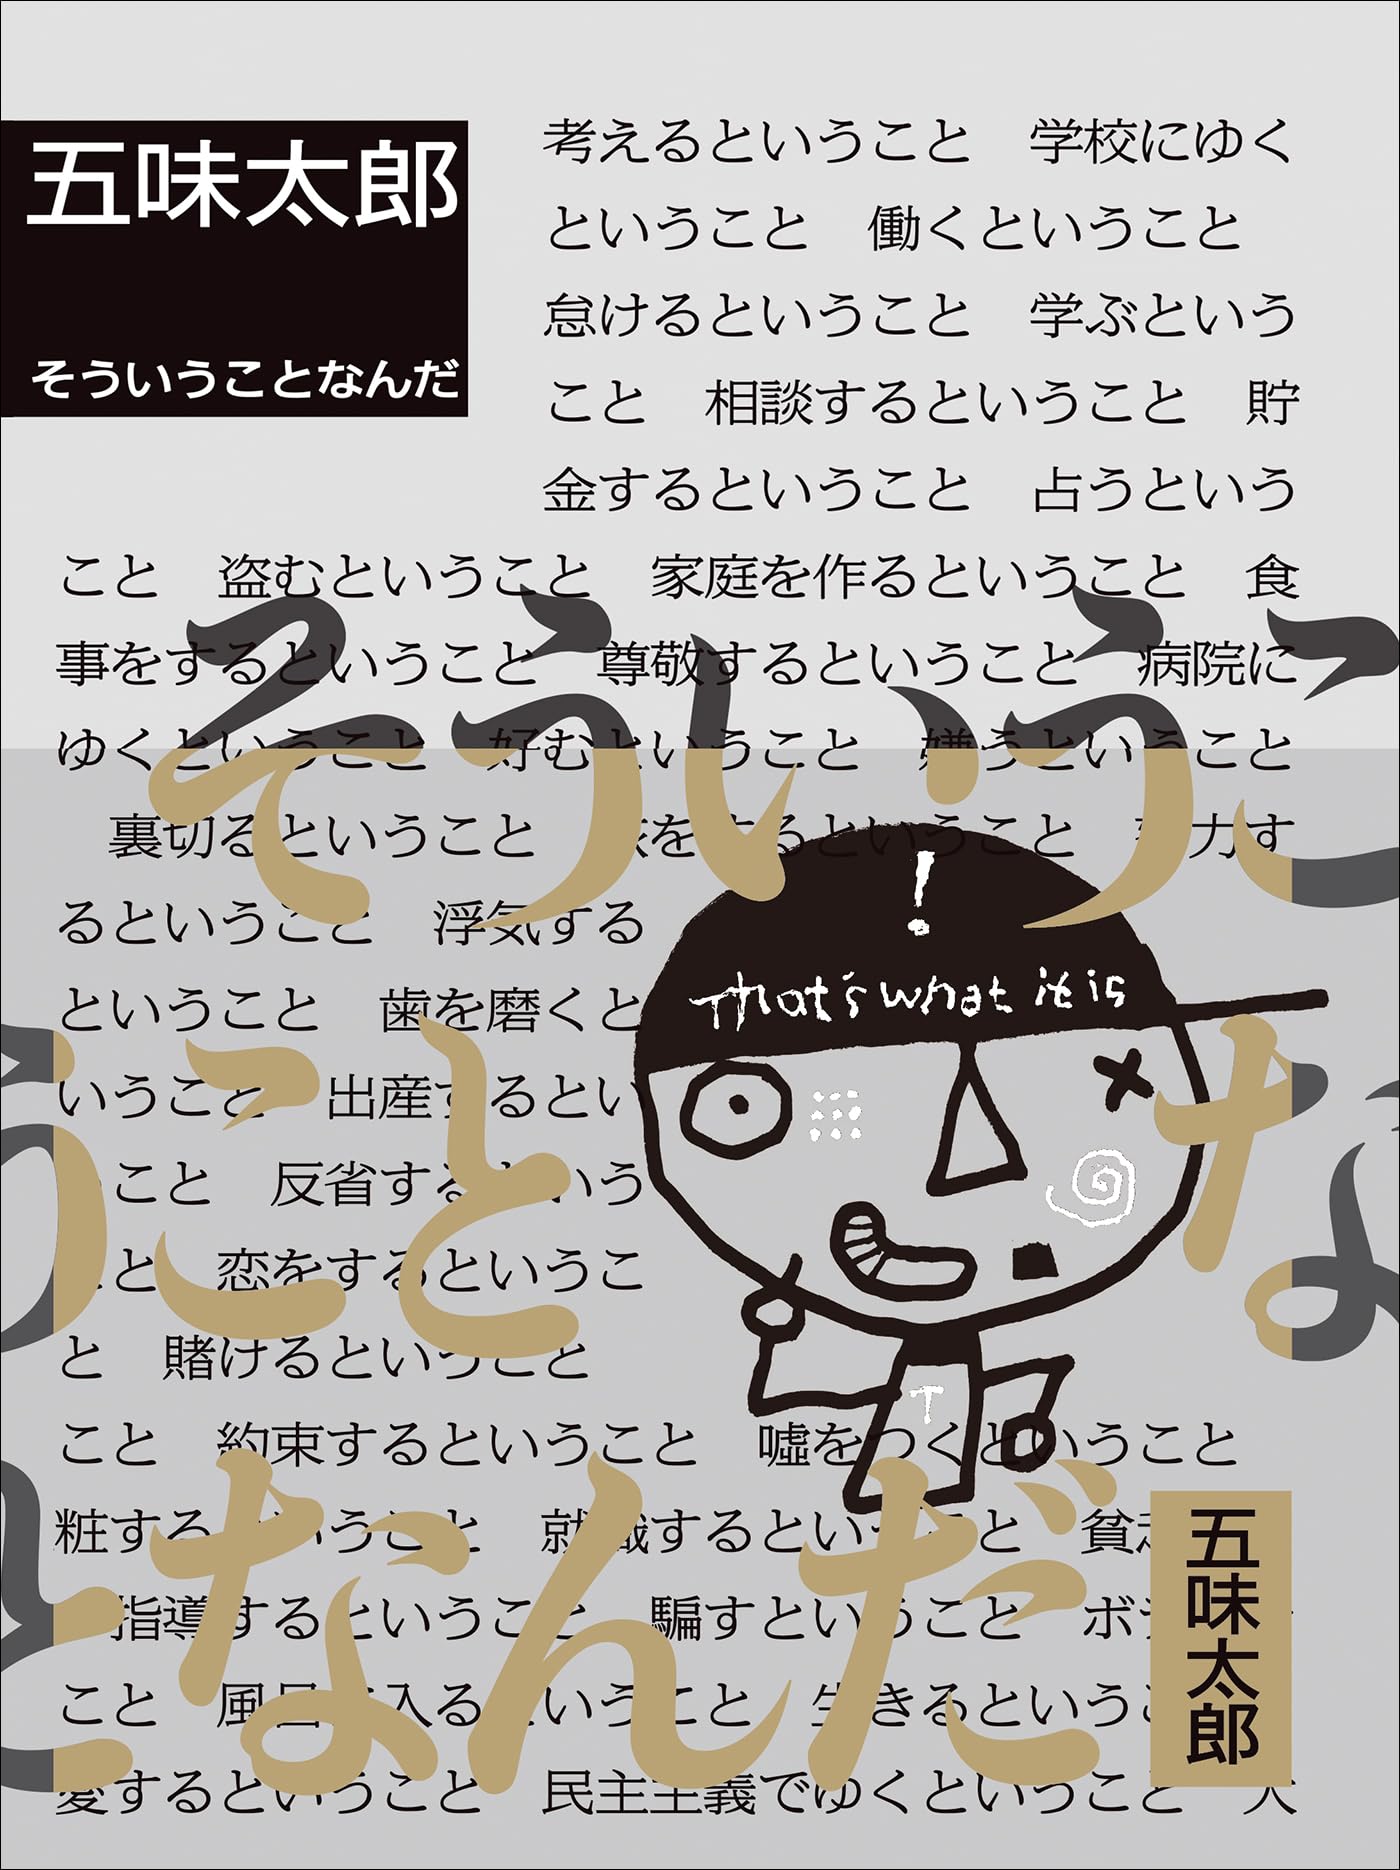 五味太郎
そういうことなんだ
考えるということ　学校にゆく
ということ　働くということ
怠けるということ　学ぶという
こと　相談するということ　貯
金するということ　占うという
こと　盗むということ　家庭を作るということ　食
事をするということ　尊敬するということ　病院に
ゆくということ　好むということ　嫌うということ
裏切るということ　をするということ　力す
るということ　浮気する
ということ　歯を磨くと
いうこと　出産するとい
うこと　反省するという
こと　恋をするというこ
と　賭けるということ
こと　約束するということ　嘘をつくということ
粧するということ　就職するということ　貧
指導するということ　騙すということ　ボ
こと　風呂に入るということ　生きるというこ
愛するということ　民主主義でゆくということ
そういうこ
うことな
となんだ
!
That's what it is
T
五味太郎